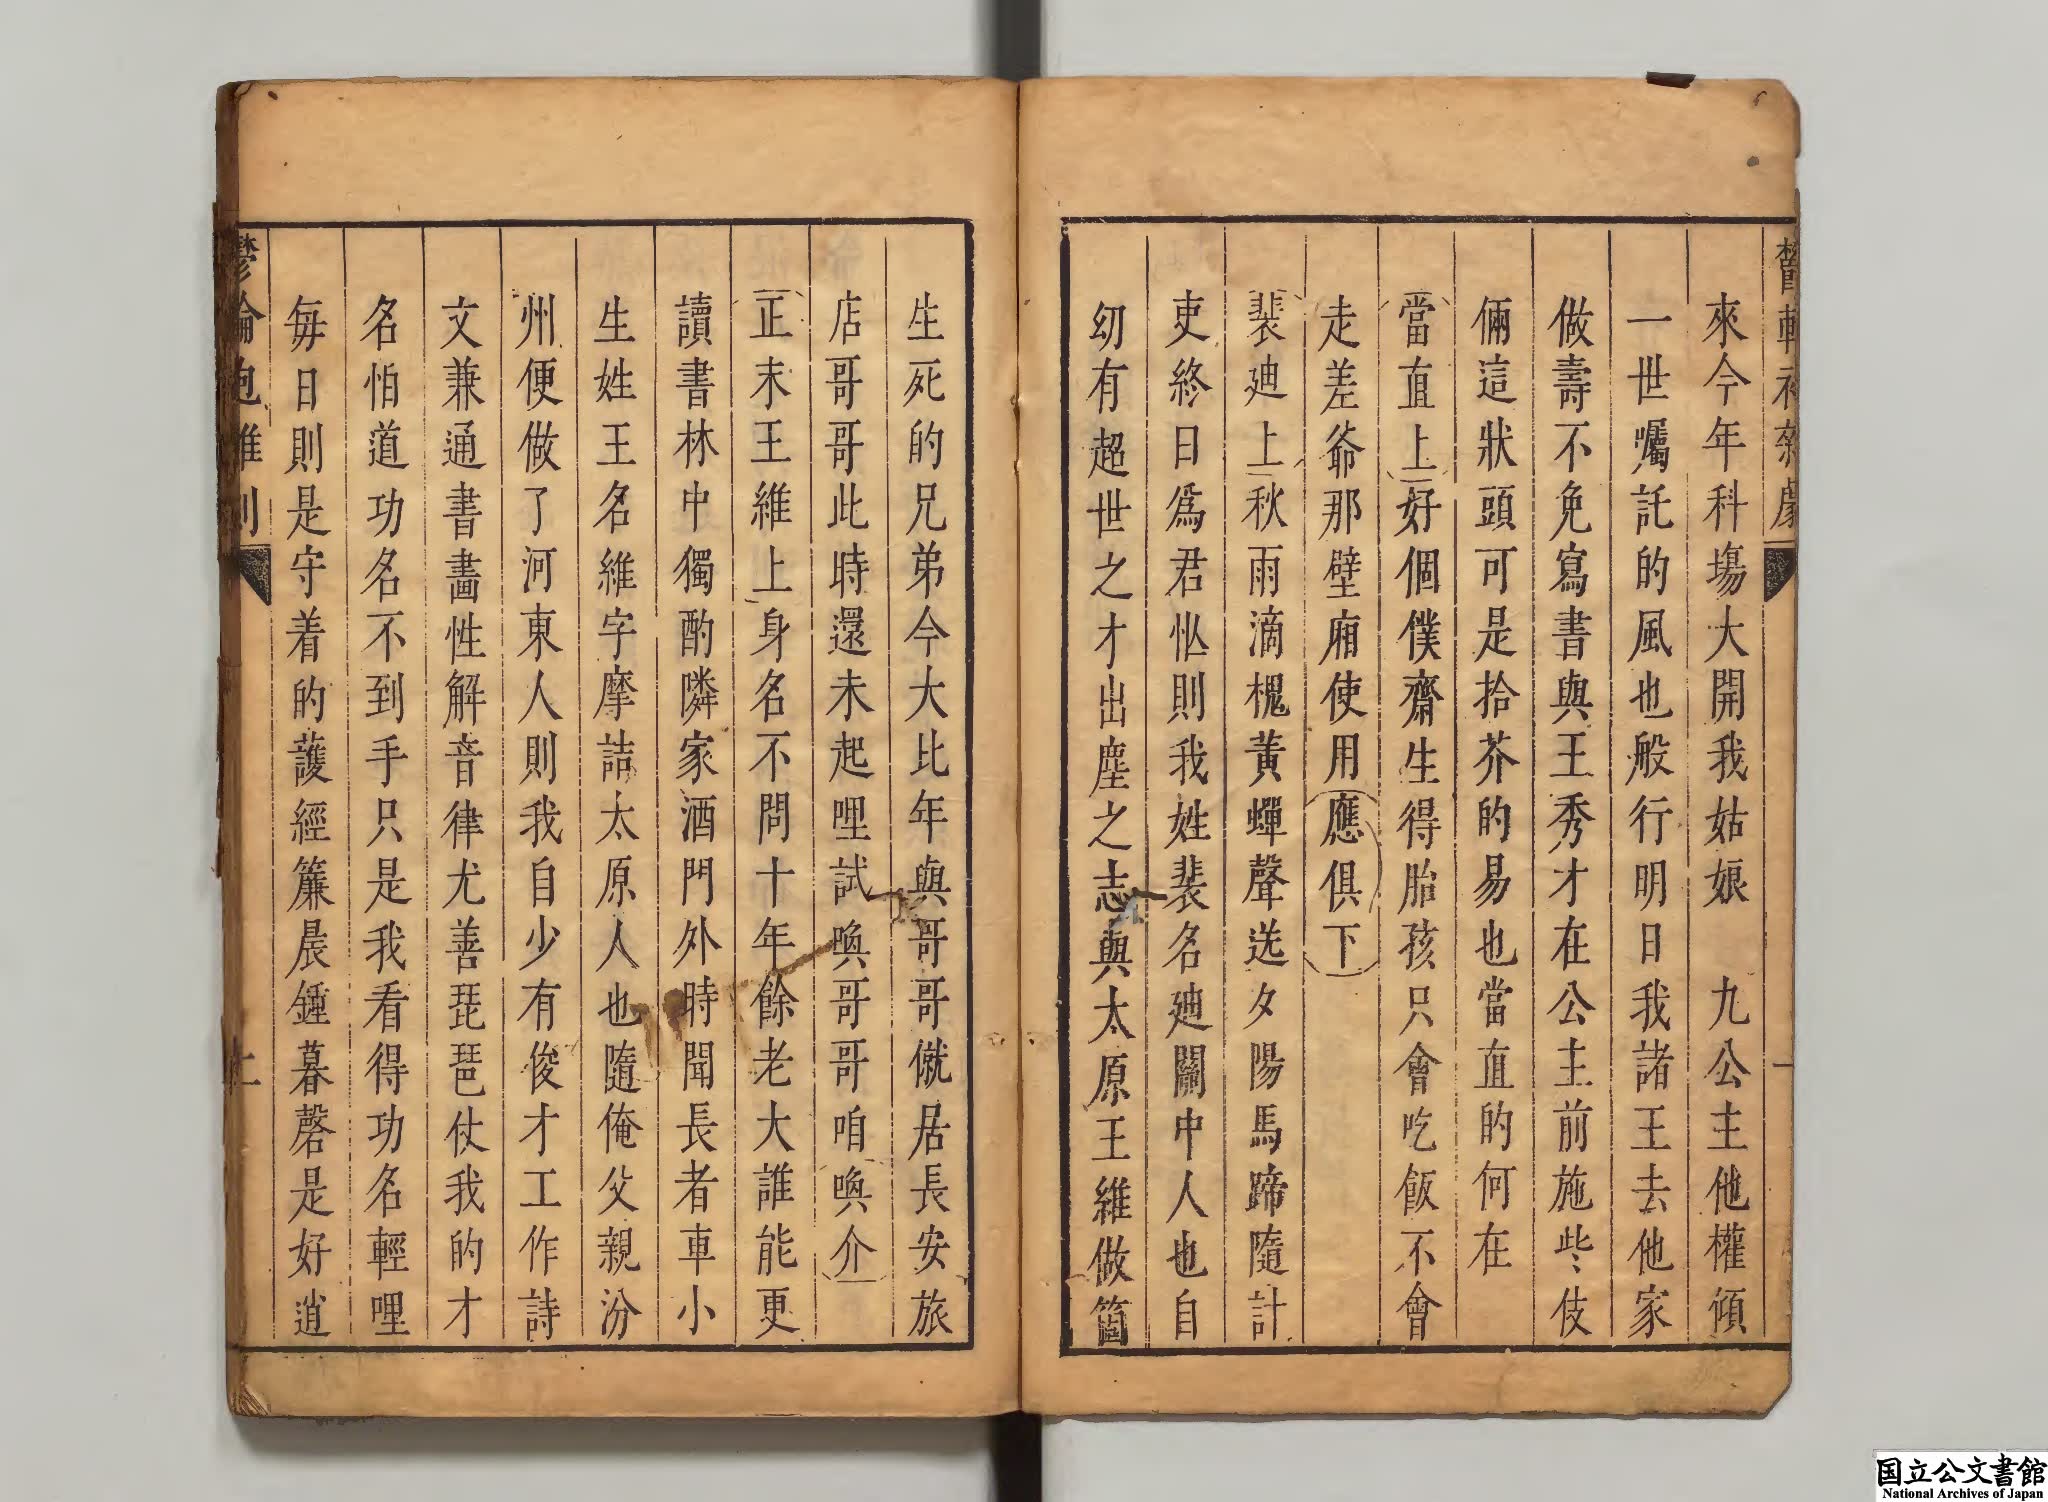 來今年科塲大開我姑娘　九公主他權傾
一世囑託的風也般行明日我諸王去他家
做壽不免寫書與王秀才在公主前施些伎
倆這狀頭可是拾芥的易也當直的何在
當直上好個僕齋生得胎孩只會吃飯不會
走差爺那壁廂使用應俱下
裴廸上秋雨滴槐黃蟬聲送夕陽馬蹄隨計
吏終日爲君忙則我姓裴名廸關中人也自
幼有超世之才出塵之志與太原王維做箇
生死的兄弟今大比年與哥哥僦居長安旅
店哥哥此時還未起哩試喚哥哥咱喚介
正末王維上身名不問十年餘老大誰能更
讀書林中獨酌隣家酒門外時聞長者車小
生姓王名維字摩詰太原人也隨俺父親汾
州便做了河東人則我自少有俊才工作詩
文兼通書畵性解音律尤善琵琶仗我的才
名怕道功名不到手只是我看得功名輕哩
每日則是守着的護經簾晨鍾暮磬是好逍
国立公文書館
National Archives of Japan